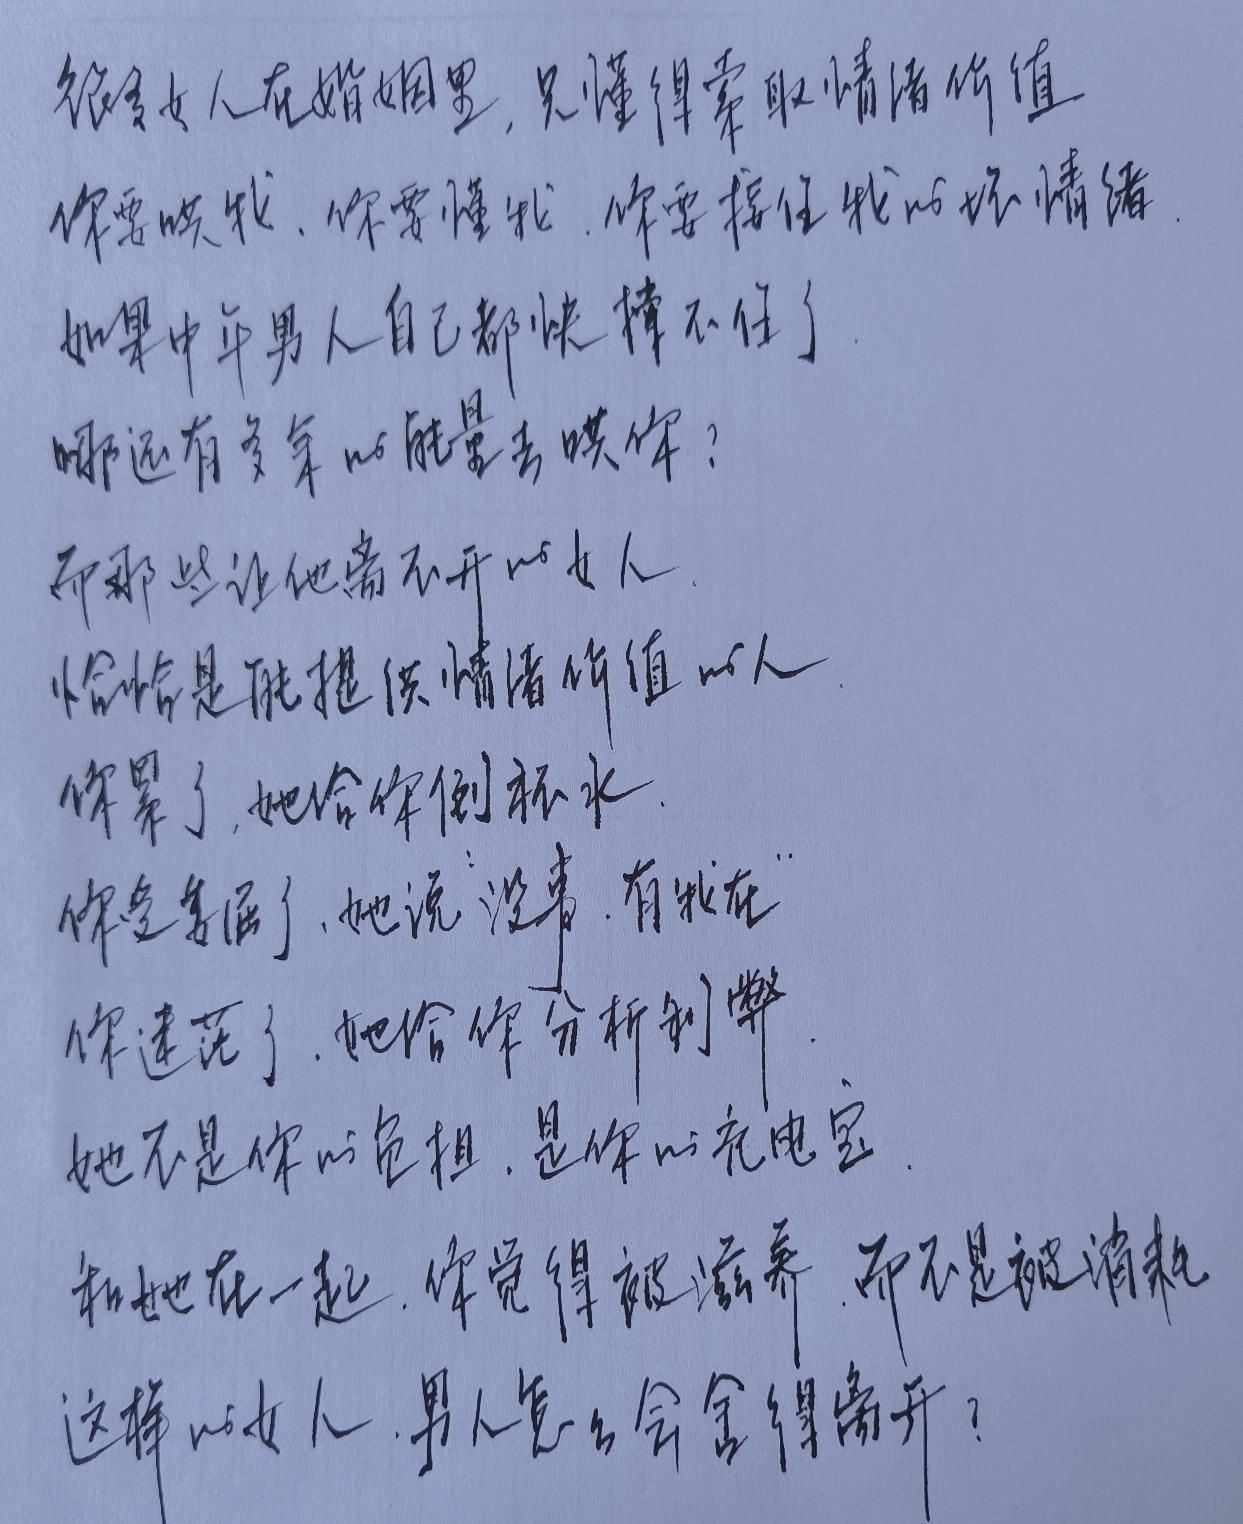 很多女人在婚姻里,只懂得索取情绪价值
你要哄我、你要懂我、你要接住我的坏情绪.
如果中年男人自己都快撑不住了.
哪还有多余的能量去哄你?
而那些让他离不开的女人.
恰恰是能提供情绪价值的人.
你累了,她给你倒杯水.
你受委屈了,她说“没事.有我在”
你迷茫了.她给你分析利弊.
她不是你的负担.是你的充电宝.
和她在一起.你觉得被滋养.而不是被消耗
这样的女人.男人怎么会舍得离开?